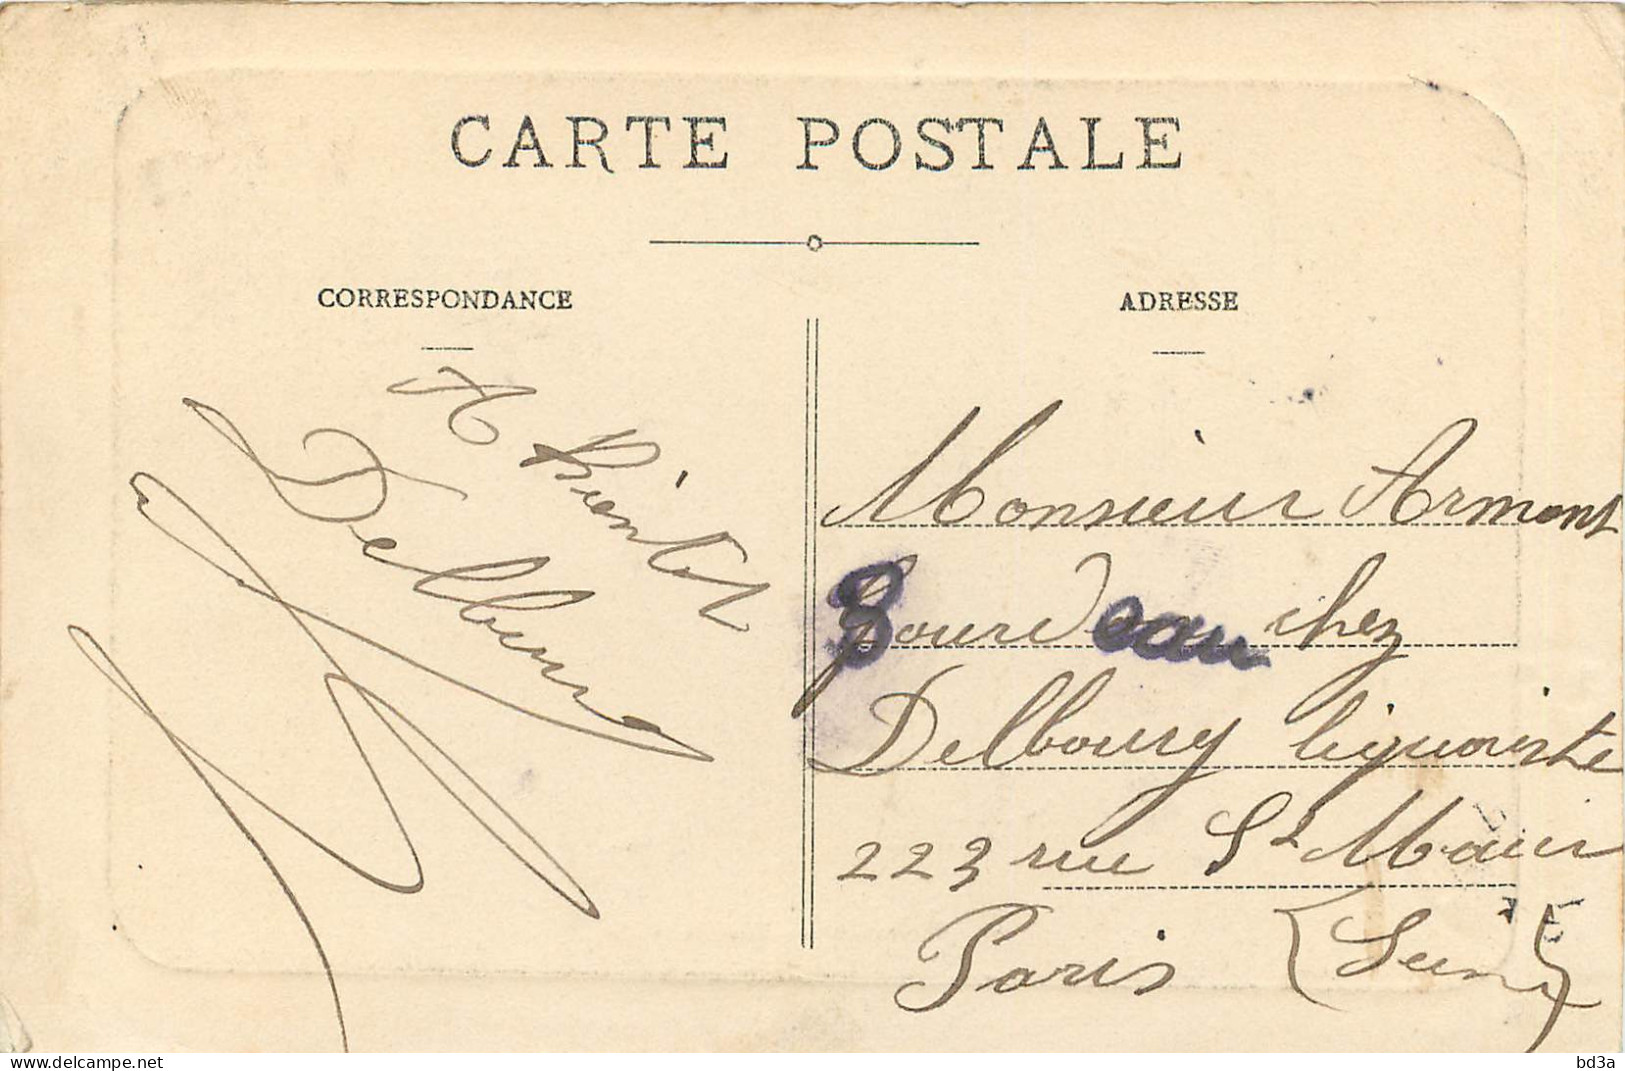 CARTE POSTALE
CORRESPONDANCE
A bientot
Delboury
ADRESSE
Monsieur Armont
Bourdeau chez
Delboury liquoriste
223 rue St Maur
Paris (Seine)
www.delcampe.net
bd3a